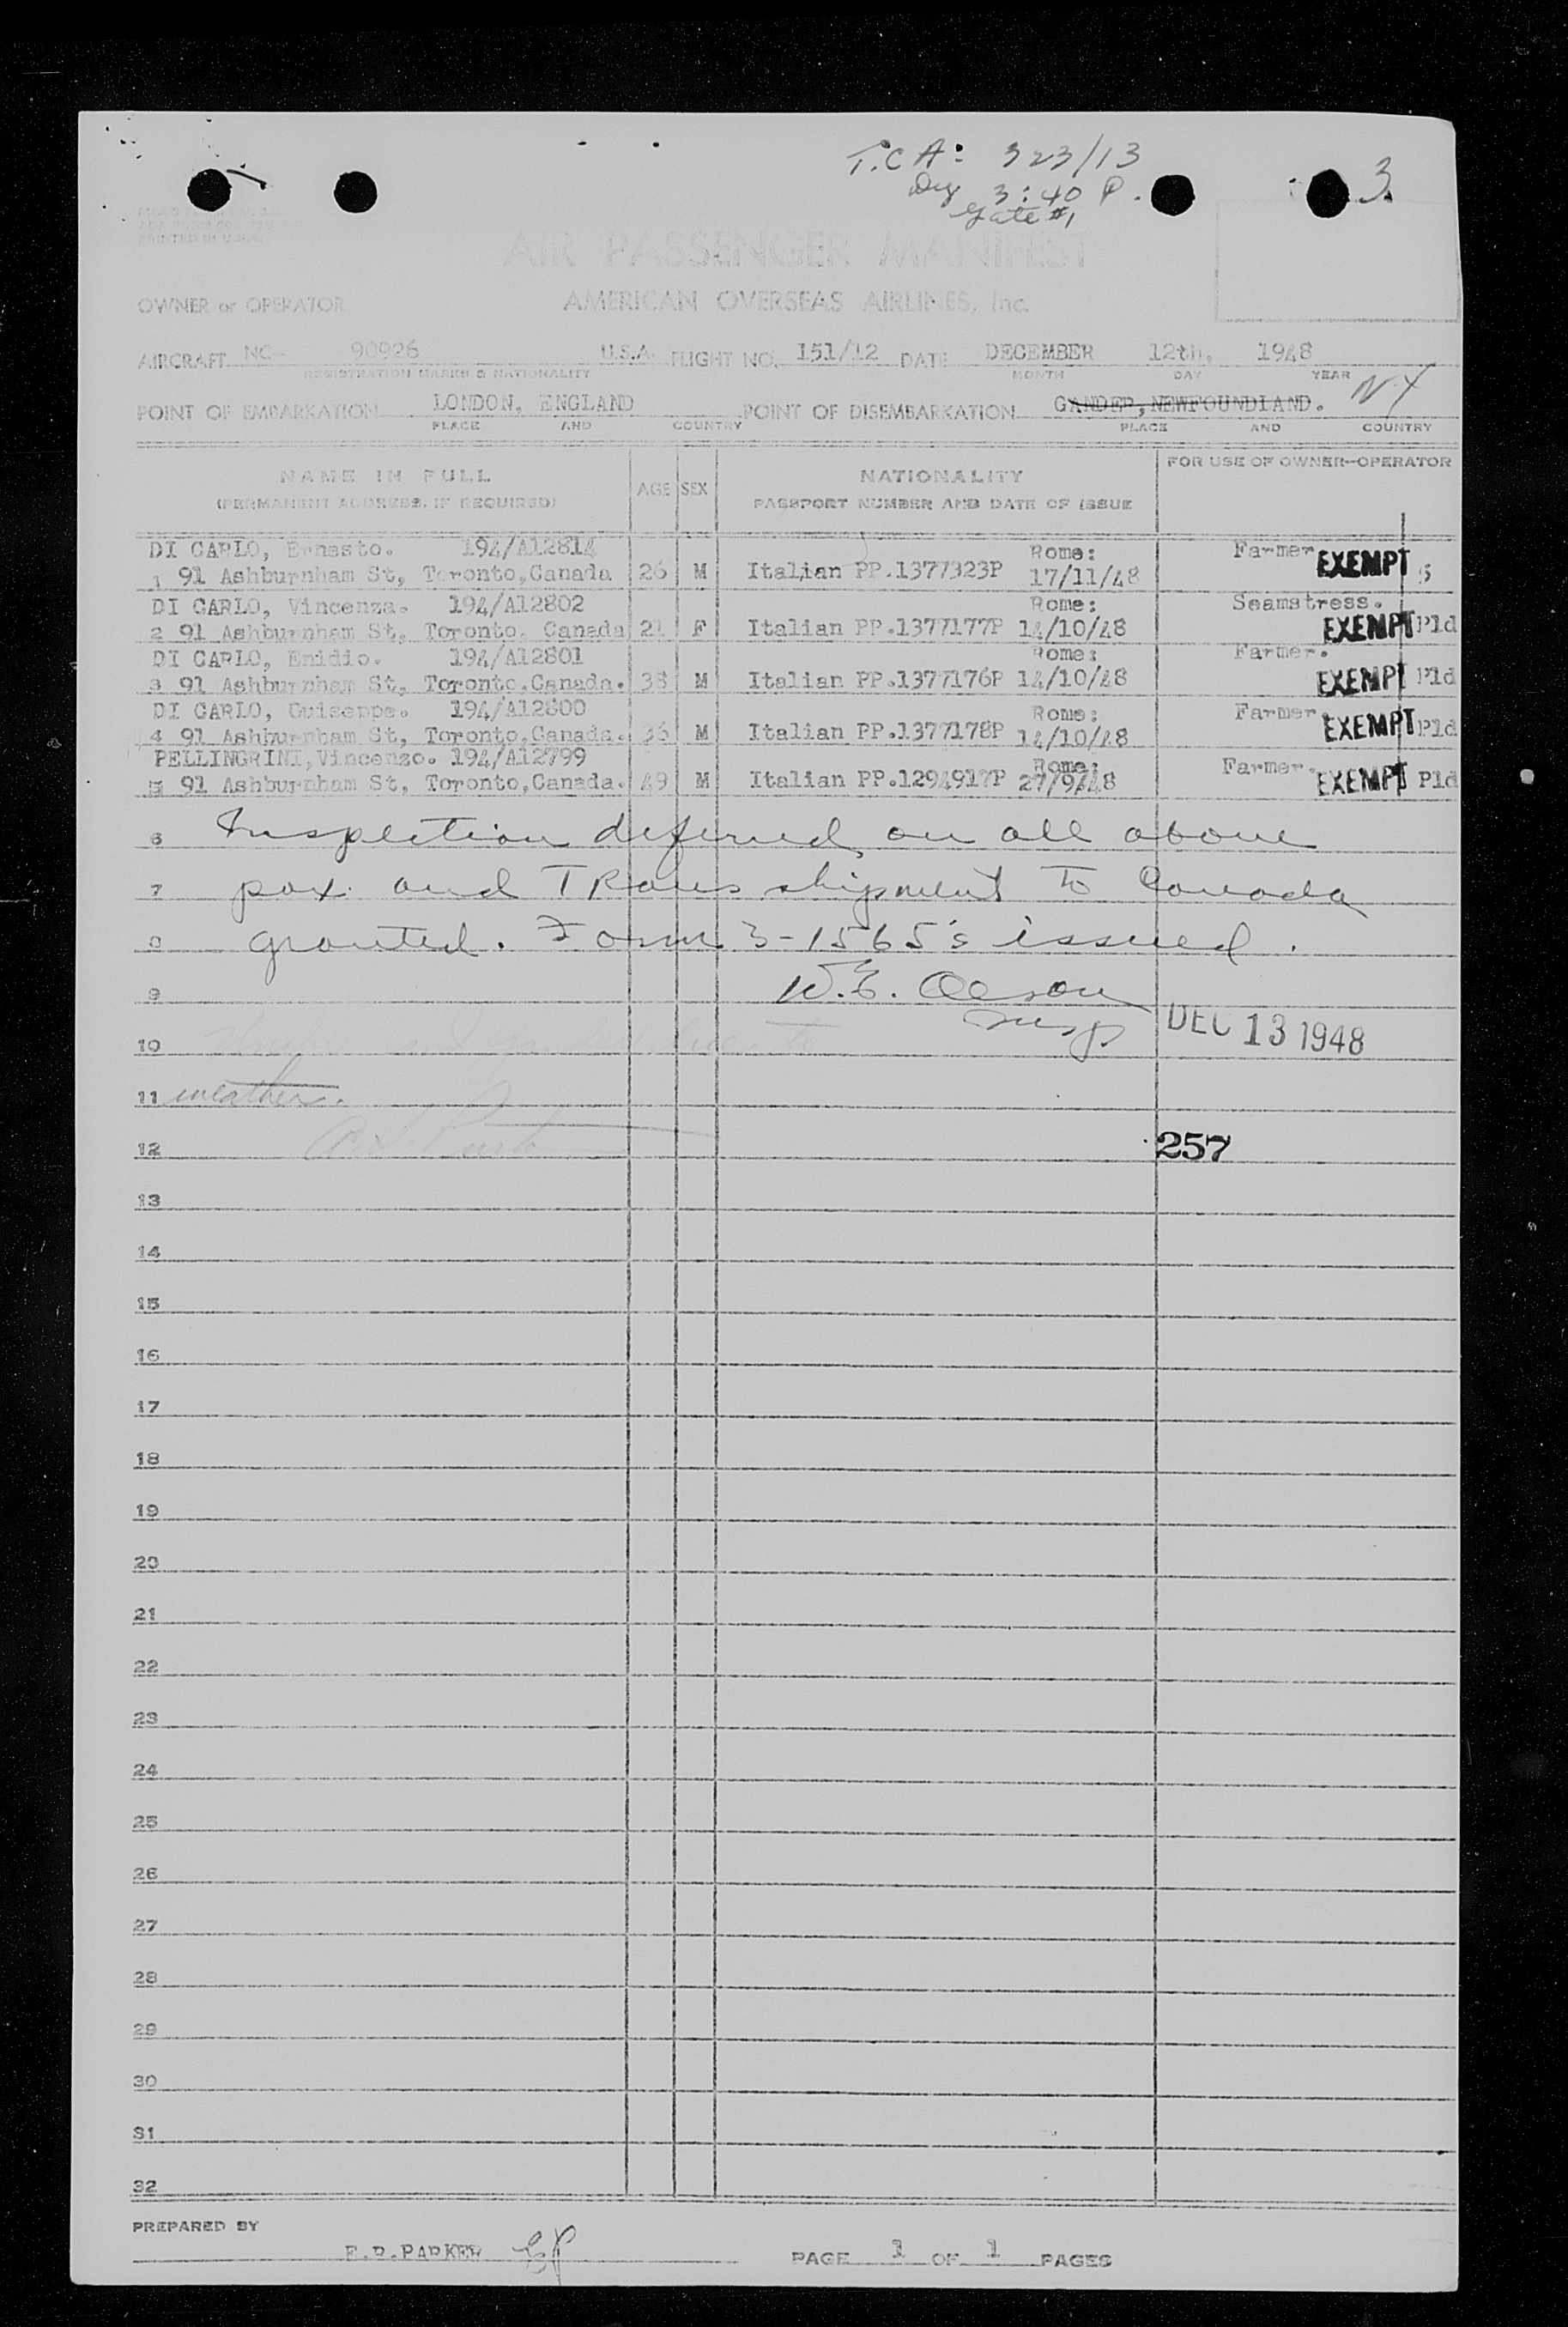 T.C A: 323/13
3:40 P.
Gate #1
3
PRINTED IN U.S.A.
AIR PASSENGER MANIFEST
OWNER or OPERATOR AMERICAN OVERSEAS AIRLINES, Inc.
AIRCRAFT NC- 90926 U.S.A. FLIGHT NO. 151/12 DATE DECEMBER 12th, 1948
REGISTRATION MARKS & NATIONALITY MONTH DAY YEAR
POINT OF EMBARKATION LONDON, ENGLAND POINT OF DISEMBARKATION GANDER, NEWFOUNDLAND. NY
PLACE AND COUNTRY PLACE AND COUNTRY
NAME IN FULL AGE SEX NATIONALITY FOR USE OF OWNER-OPERATOR
(PERMANENT ADDRESS, IF REQUIRED) PASSPORT NUMBER AND DATE OF ISSUE
DI CARLO, Ernesto. 194/A12814 Rome: Farmer
1 91 Ashburnham St, Toronto,Canada 26 M Italian PP.1377323P 17/11/48 EXEMPT
DI CARLO, Vincenza. 194/A12802 Rome: Seamstress.
2 91 Ashburnham St, Toronto. Canada F Italian PP.1377177P 14/10/48 EXEMPT Pld
DI CARLO, Emidio. 194/A12801 Rome: Farmer.
3 91 Ashburnham St, Toronto.Canada. 38 M Italian PP.1377176P 14/10/48 EXEMPT Pld
DI CARLO, Guiseppe. 194/A12800 Rome: Farmer.
4 91 Ashburnham St, Toronto,Canada. 36 M Italian PP.1377178P 14/10/48 EXEMPT Pld
PELLINGRINI,Vincenzo. 194/A12799 Rome: Farmer.
5 91 Ashburnham St, Toronto,Canada. 49 M Italian PP.1294917P 27/9/48 EXEMPT Pld
6 Inspection deferred on all above
7 pax and TRans shipment to Canada
8 granted. Form 3-1565's issued.
9 W.E. Olson
Insp DEC 13 1948
10
11 weather.
12 257
13
14
15
16
17
18
19
20
21
22
23
24
25
26
27
28
29
30
31
32
PREPARED BY
E.R.PARKER EP PAGE 1 OF 1 PAGES